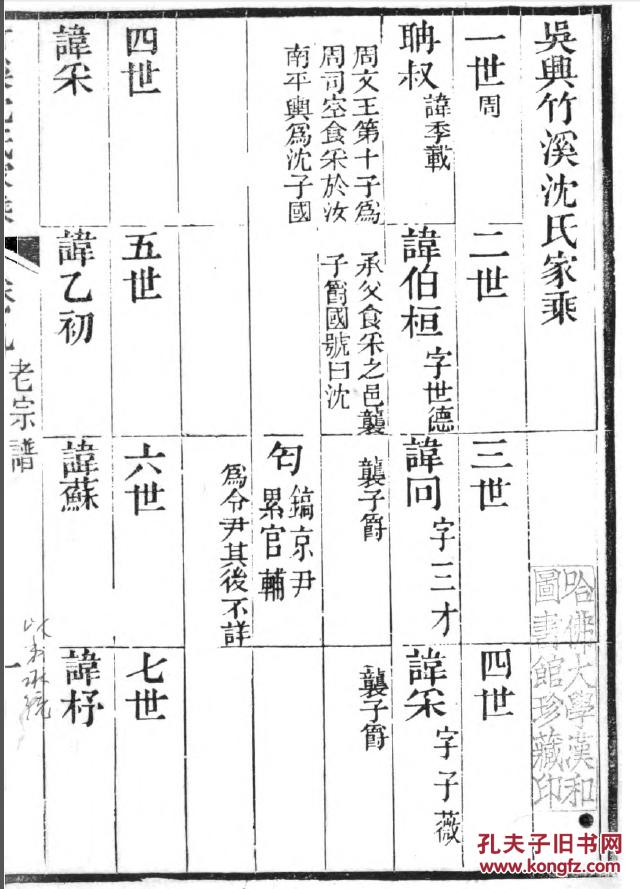 吳興竹溪沈氏家乘
一世周
二世
三世
四世
聃叔 諱季載
諱伯桓 字世德
諱冋 字三才
諱釆 字子薇
周文王第十子爲
周司空食釆於汝
南平輿爲沈子國
承父食釆之邑襲
子爵國號曰沈
襲子爵
襲子爵
匄 鎬京尹
累官輔
爲令尹其後不詳
四世
五世
六世
七世
諱釆
諱乙初
諱蘇
諱杼
老宗譜
一
哈佛大學漢和
圖書館珍藏印
孔夫子旧书网
www.kongfz.com